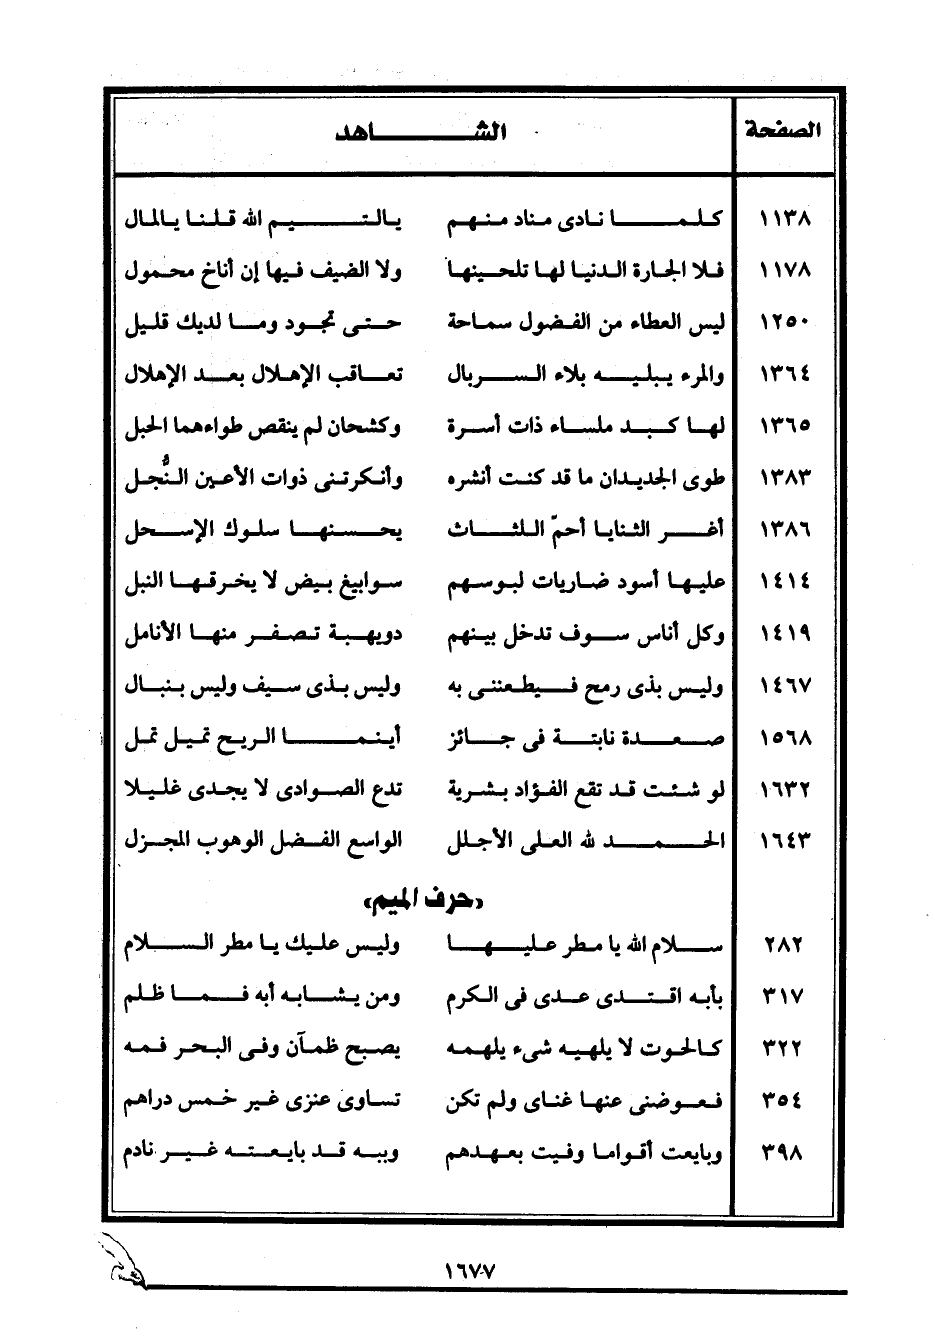 الصفحة الشاهد
١١٣٨ كلما نادى مناد منهم يالتيم الله قلنا يالمال
١١٧٨ فلا الجارة الدنيا لها تلحينها ولا الضيف فيها إن أناخ محمول
١٢٥٠ ليس العطاء من الفضول سماحة حتى تجود وما لديك قليل
١٣٦٤ والمرء يبليه بلاء السربال تعاقب الإهلال بعد الإهلال
١٣٦٥ لها كبد ملساء ذات أسرة وكشحان لم ينقص طواءهما الحبل
١٣٨٣ طوى الجديدان ما قد كنت أنشره وأنكرتنى ذوات الأعين النُّجل
١٣٨٦ أغر الثنايا أحمّ اللثاث يحسنها سلوك الإسحل
١٤١٤ عليها أسود ضاريات لبوسهم سوابيغ بيض لا يخرقها النبل
١٤١٩ وكل أناس سوف تدخل بينهم دويهية تصفر منها الأنامل
١٤٦٧ وليس بذى رمح فيطعننى به وليس بذى سيف وليس بنبال
١٥٦٨ صعدة نابتة فى حائز أينما الريح تميل تمل
١٦٣٢ لو شئت قد نقع الفؤاد بشربة تدع الصوادى لا يجدى غليلا
١٦٤٣ الحمد لله العلى الأجلل الواسع الفضل الوهوب المجزل
«حرف الميم»
٢٨٢ سلام الله يا مطر عليها وليس عليك يا مطر السلام
٣١٧ بأبه اقتدى عدى فى الكرم ومن يشابه أبه فما ظلم
٣٢٢ كالحوت لا يلهيه شىء يلهمه يصبح ظمآن وفى البحر فمه
٣٥٤ فعوضنى عنها غناى ولم تكن تساوى عنزى غير خمس دراهم
٣٩٨ وبايعت أقواما وفيت بعهدهم وببه قد بايعته غير نادم
١٦٧٧